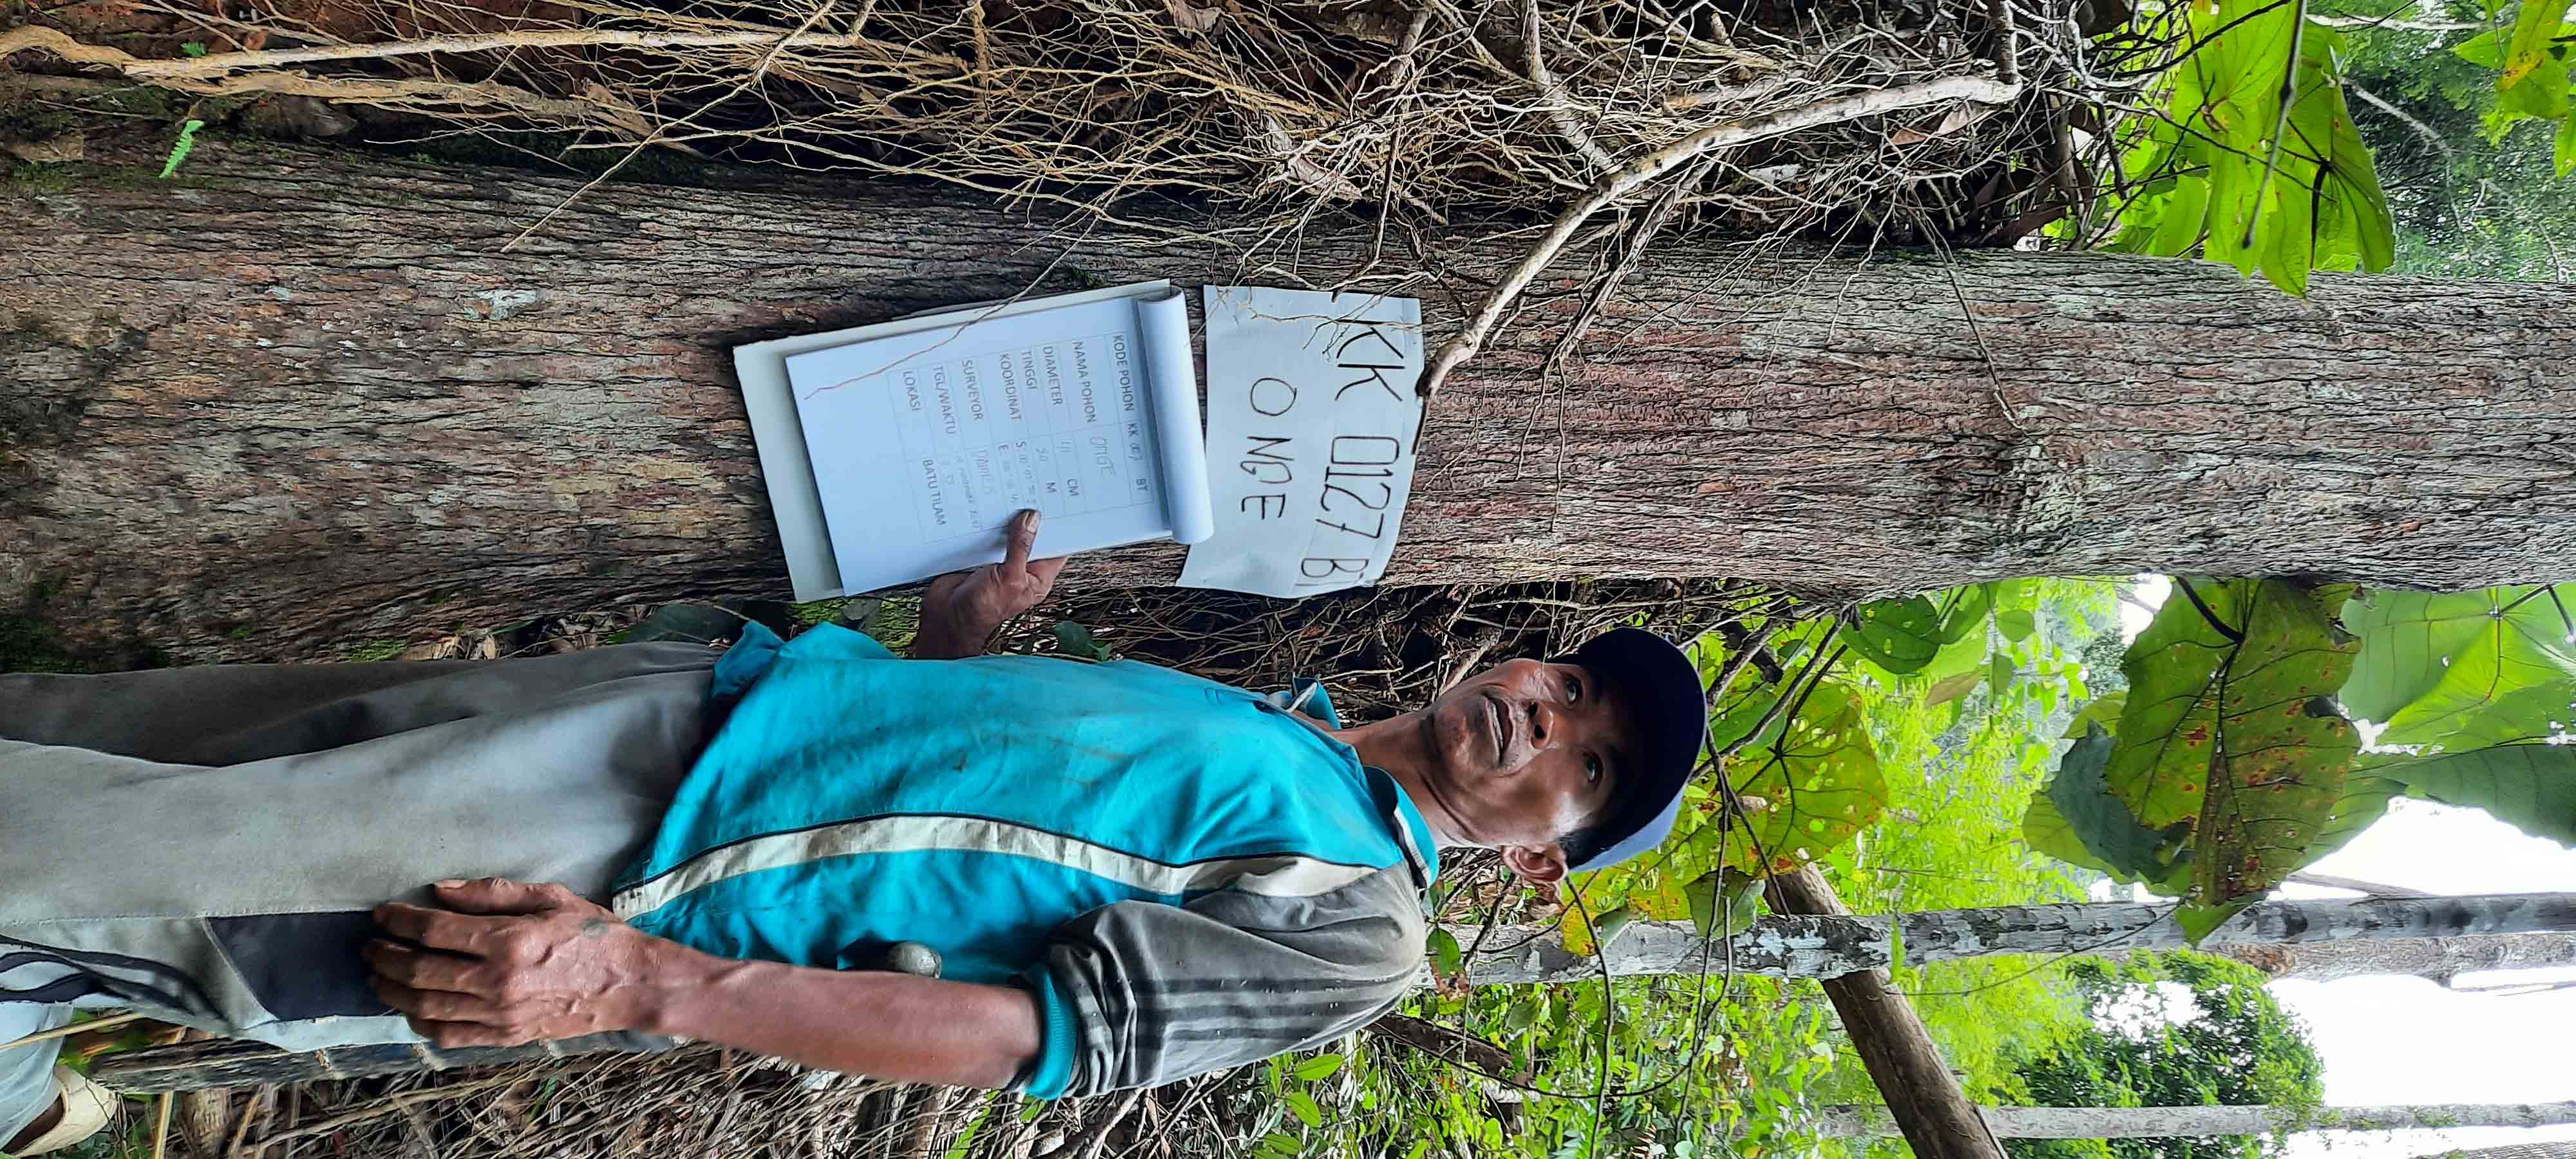 KK 0127 BT
ONGE
KODE POHON KK BT
NAMA POHON ONGE
DIAMETER CM
TINGGI 20 M
KOORDINAT S
E
SURVEYOR
TGL/WAKTU
LOKASI BATU TILAM